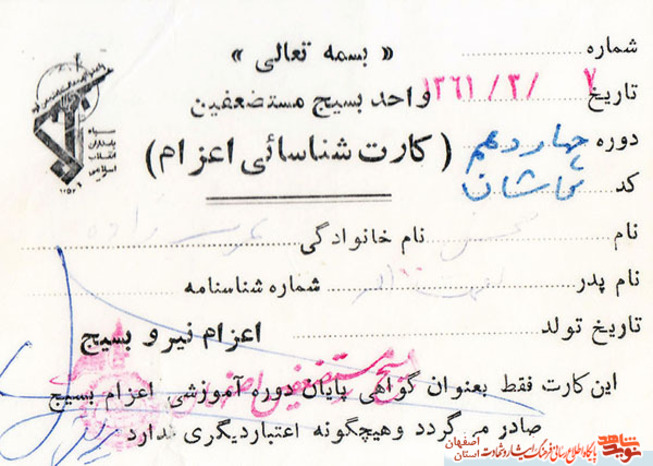 شماره
« بسمه تعالی »
تاریخ ۷ /۳/ ۱۳۶۱
واحد بسیج مستضعفین
دوره چهاردهم
( کارت شناسائی اعزام )
کد کاشان
سپاه
پاسداران
انقلاب
اسلامی
نام محسن نام خانوادگی
نام پدر شماره شناسنامه
تاریخ تولد
اعزام نیرو بسیج
بسیج مستضعفین
این کارت فقط بعنوان گواهی پایان دوره آموزشی اعزام بسیج
صادر می گردد وهیچگونه اعتباردیگری ندارد
نوید شاهد
پایگاه اطلاع رسانی فرهنگ ایثار و شهادت
استان اصفهان